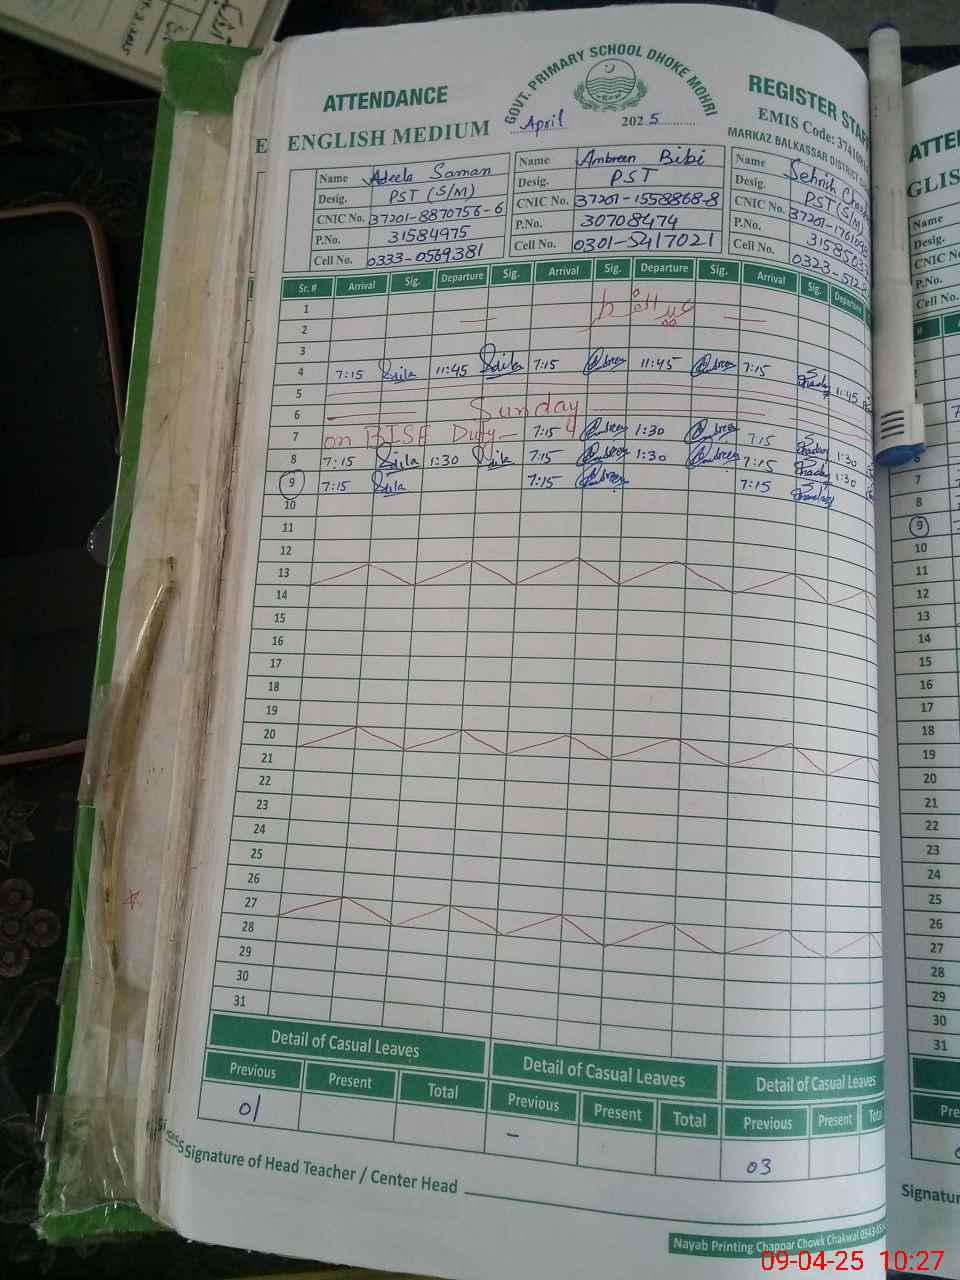 ATTENDANCE
GOVT. PRIMARY SCHOOL DHOKE MOHRI
REGISTER STAFF
ENGLISH MEDIUM
April 2025
EMIS Code:
MARKAZ BALKASSAR DISTRICT
Name Adeela Saman
Desig. PST (S/M)
CNIC No. 37201-8870756-6
P.No. 31584975
Cell No. 0333-0569381
Name Ambreen Bibi
Desig. PST
CNIC No. 37201-1558868-8
P.No. 30708474
Cell No. 0301-5417021
Name Sehrish
Desig. PST (S/M)
CNIC No. 37201-
P.No.
Cell No. 0323-
Sr. # Arrival Sig. Departure Sig. Arrival Sig. Departure Sig. Arrival Sig. Departure
1
2
3
4 7:15 11:45 7:15 11:45 7:15 11:45
5
6 Sunday
7 on BISE Duty 7:15 1:30 7:15 1:30
8 7:15 1:30 7:15 1:30 7:15 1:30
9 7:15 7:15 7:15
10
11
12
13
14
15
16
17
18
19
20
21
22
23
24
25
26
27
28
29
30
31
Detail of Casual Leaves Detail of Casual Leaves Detail of Casual Leaves
Previous Present Total Previous Present Total Previous Present Total
01 - 03
Signature of Head Teacher / Center Head
Nayab Printing Chappar Chowk Chakwal
Name
Desig.
CNIC No.
P.No.
Cell No.
7
8
9
10
11
12
13
14
15
16
17
18
19
20
21
22
23
24
25
26
27
28
29
30
31
09-04-25 10:27